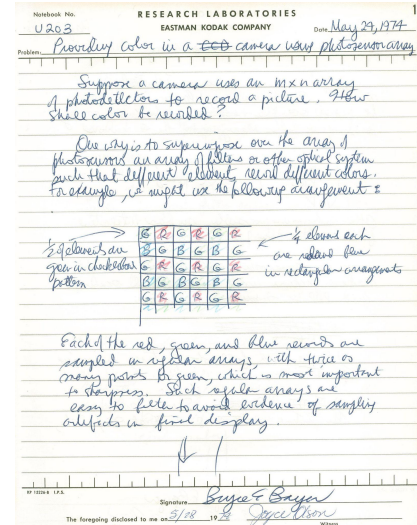 1
Notebook No.
RESEARCH LABORATORIES
U203
EASTMAN KODAK COMPANY
Date May 29, 1974
Problem: Providing color in a CCD camera using photosensor array
Suppose a camera uses an m x n array
of photodetectors to record a picture. How
shall color be recorded?
One way is to superimpose over the array of
photosensors an array of filters or other optical system
such that different elements record different colors.
For example, we might use the following arrangement:
G R G R G R
B G B G B G
G R G R G R
B G B G B G
G R G R G R
½ of elements are
green in checkerboard
pattern
¼ elements each
are red and blue
in rectangular arrangements
Each of the red, green, and blue records are
sampled in regular arrays, with twice as
many points for green, which is most important
to sharpness. Such regular arrays are
easy to filter to avoid evidence of sampling
artifacts in final display.
KP 13236-B I.P.S.
Signature Bryce E Bayer
The foregoing disclosed to me on 5/28 19 Joyce Olson
Witness